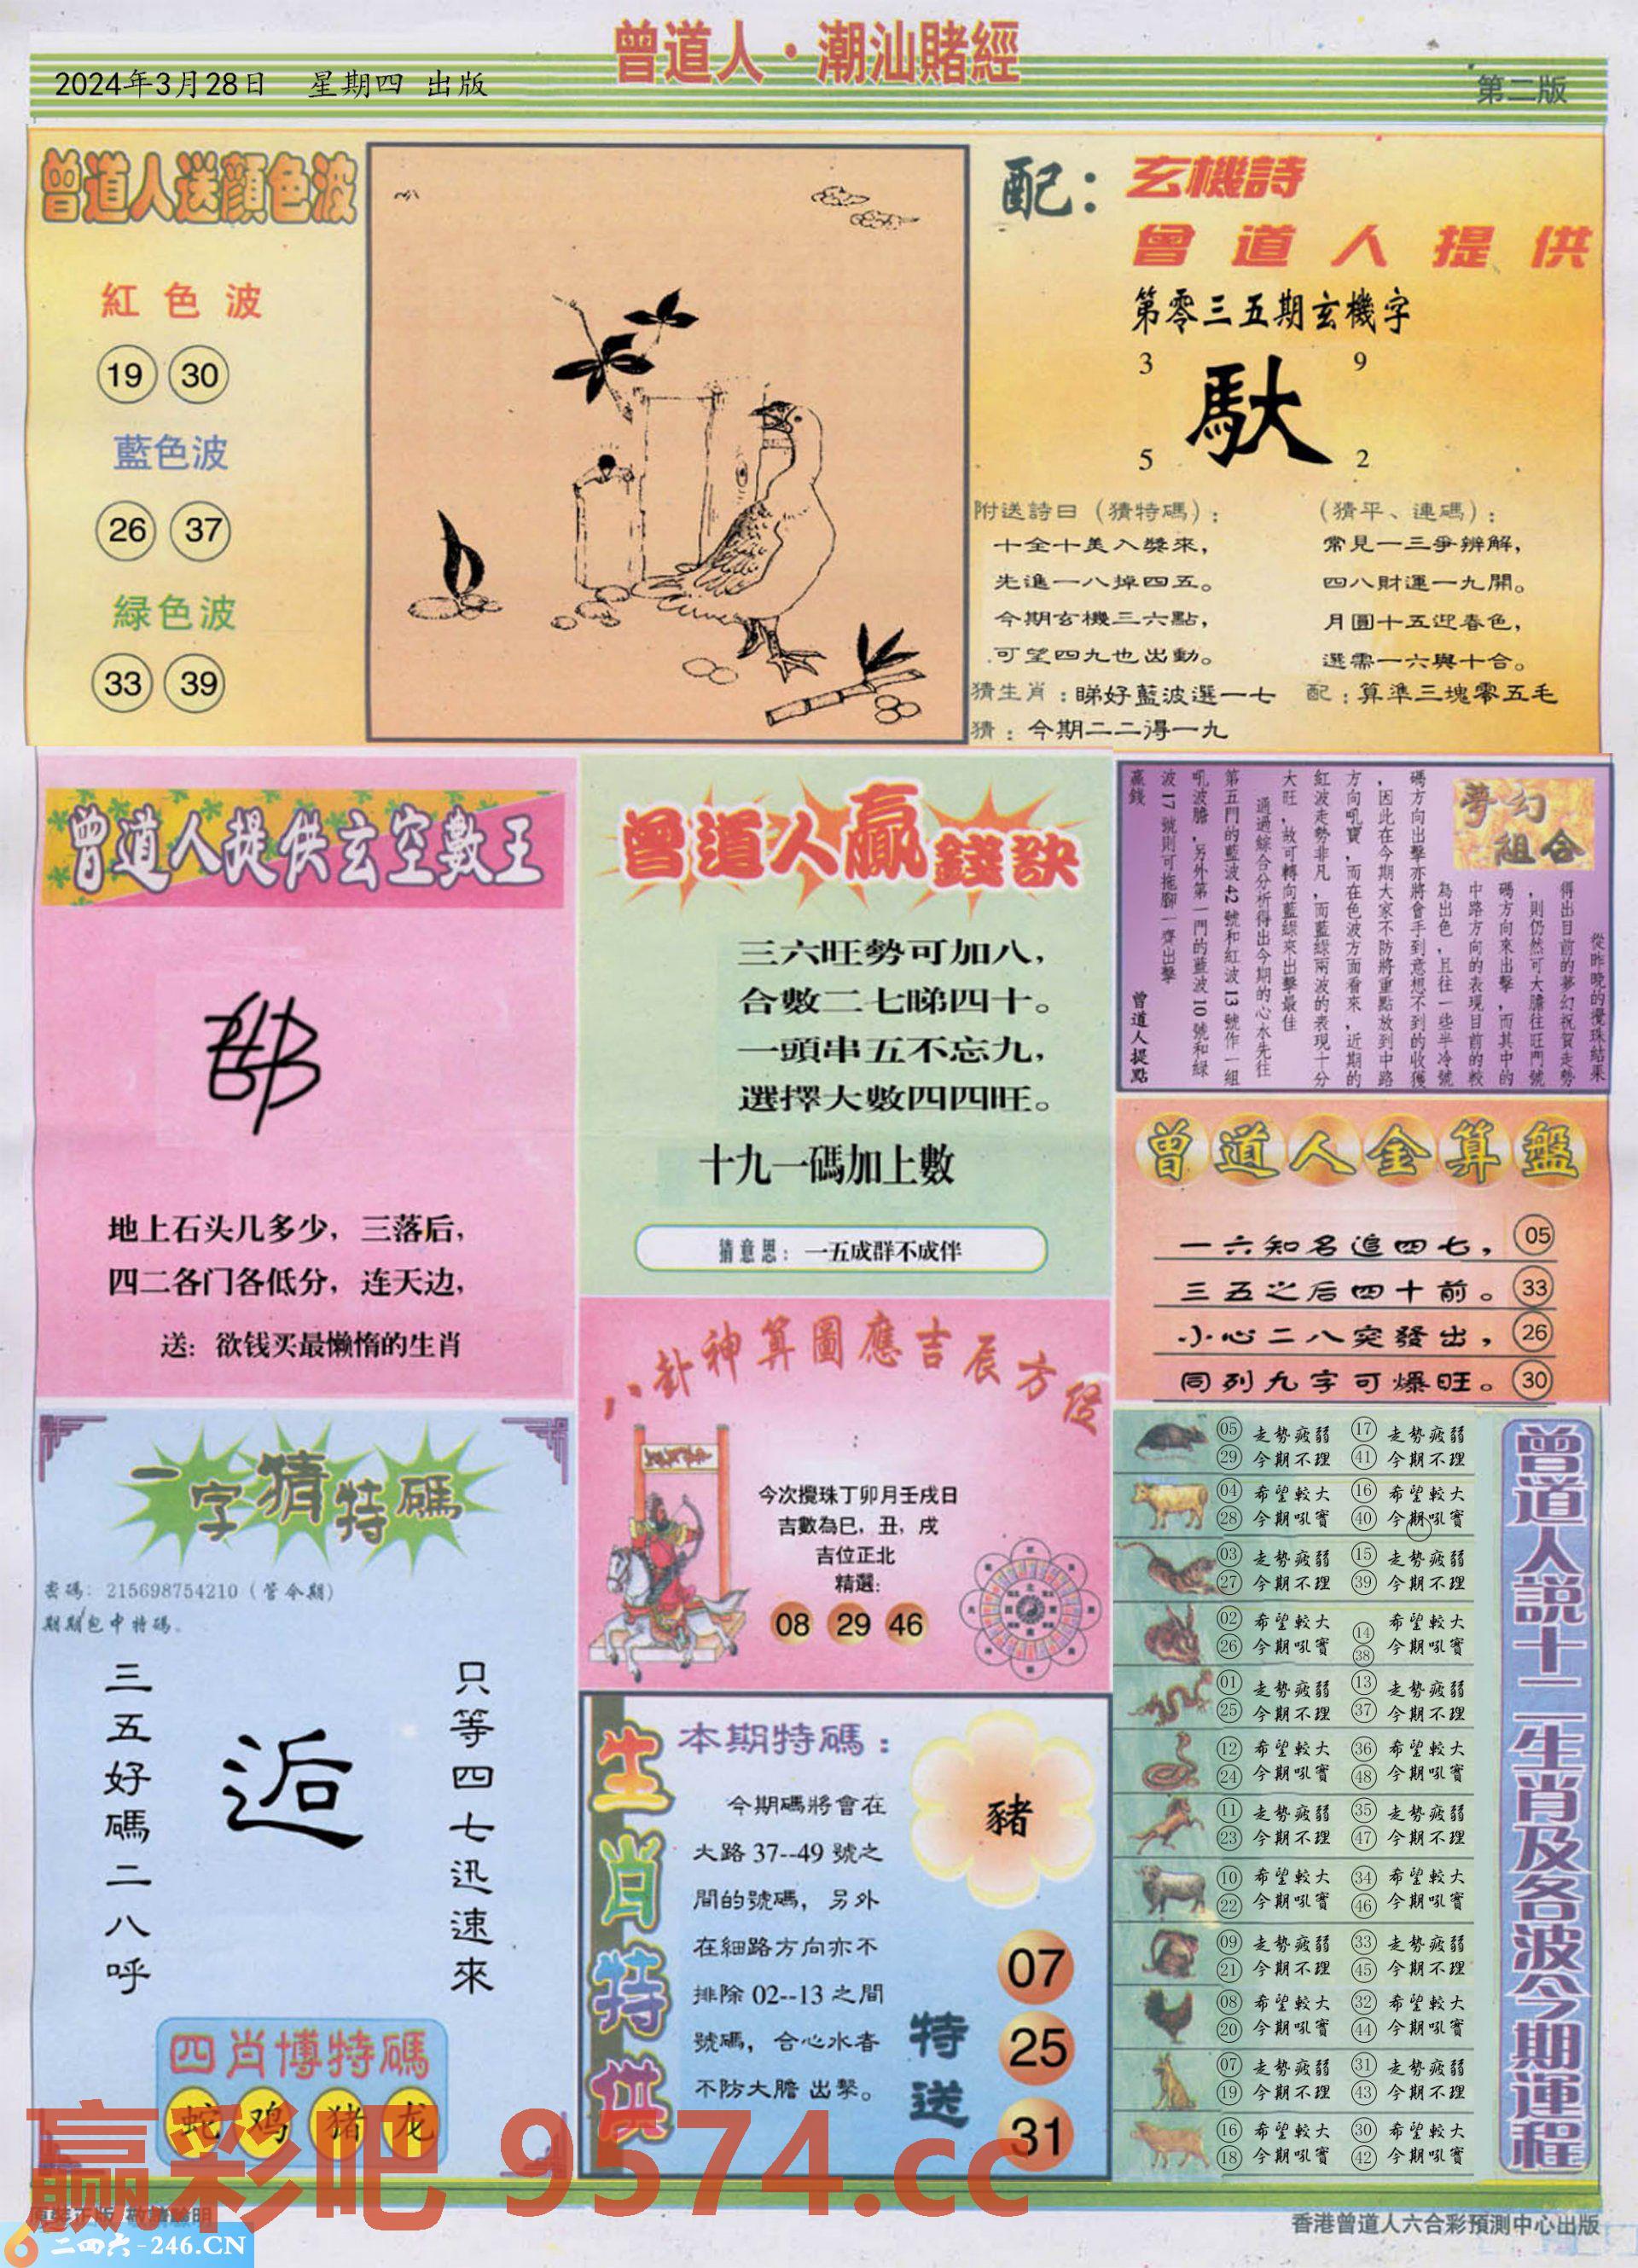 曾道人·潮汕賭經
2024年3月28日 星期四 出版
第二版
曾道人送顔色波
紅色波
19 30
藍色波
26 37
緑色波
33 39
配：玄機詩
曾道人提供
第零三五期玄機字
3 9
馱
5 2
附送詩日（猜特碼）：
十全十美入獎來，
先進一八掉四五。
今期玄機三六點，
可望四九也出動。
（猜平、連碼）：
常見一三爭辨解，
四八財運一九開。
月圓十五迎春色，
選需一六與十合。
猜生肖：睇好藍波選一七
配：算準三塊零五毛
猜：今期二二得一九
曾道人提供玄空數王
地上石头几多少，三落后，
四二各门各低分，连天边，
送：欲钱买最懒惰的生肖
曾道人贏錢訣
三六旺勢可加八，
合數二七睇四十。
一頭串五不忘九，
選擇大數四四旺。
十九一碼加上數
猜意思：一五成群不成伴
夢幻組合
從昨晚的攪珠結果
得出目前的夢幻祝賀走勢
，則仍然可大膽往旺門號
碼方向來出擊，而其中的
中路方向的表現目前的較
為出色，且往一些半冷號
碼方向出擊亦將會手到意想不到的收獲
，因此在今期大家不防將重點放到中路
方向吼寶，而在色波方面看來，近期的
紅波走勢非凡，而藍綠兩波的表現十分
大旺，故可轉向藍綠來出擊最佳
通過綜合分析得出今期的心水先往
第五門的藍波42號和紅波13號作一組
吼波膽，另外第一門的藍波10號和綠
波17號則可拖腳一齊出擊
贏錢
曾道人提點
曾道人金算盤
一六知名追四七， 05
三五之后四十前。 33
小心二八突發出， 26
同列九字可爆旺。 30
八卦神算圖應吉辰方位
今次攪珠丁卯月壬戌日
吉數為巳，丑，戌
吉位正北
精選：
08 29 46
一字猜特碼
密碼：215698754210（管今期）
期期包中特碼。
三五好碼二八呼
逅
只等四七迅速來
四肖博特碼
蛇 鸡 猪 龙
生肖特供
本期特碼：
今期碼將會在
大路37--49號之
間的號碼，另外
在細路方向亦不
排除02--13之間
號碼，合心水者
不防大膽出擊。
豬
特送
07
25
31
曾道人說十二生肖及各波今期運程
05 走勢疲弱 17 走勢疲弱
29 今期不理 41 今期不理
04 希望較大 16 希望較大
28 今期吼實 40 今期吼實
03 走勢疲弱 15 走勢疲弱
27 今期不理 39 今期不理
02 希望較大 14 希望較大
26 今期吼實 38 今期吼實
01 走勢疲弱 13 走勢疲弱
25 今期不理 37 今期不理
12 希望較大 36 希望較大
24 今期吼實 48 今期吼實
11 走勢疲弱 35 走勢疲弱
23 今期不理 47 今期不理
10 希望較大 34 希望較大
22 今期吼實 46 今期吼實
09 走勢疲弱 33 走勢疲弱
21 今期不理 45 今期不理
08 希望較大 32 希望較大
20 今期吼實 44 今期吼實
07 走勢疲弱 31 走勢疲弱
19 今期不理 43 今期不理
16 希望較大 30 希望較大
18 今期吼實 42 今期吼實
赢彩吧 9574.cc
二四六-246.CN
香港曾道人六合彩預測中心出版